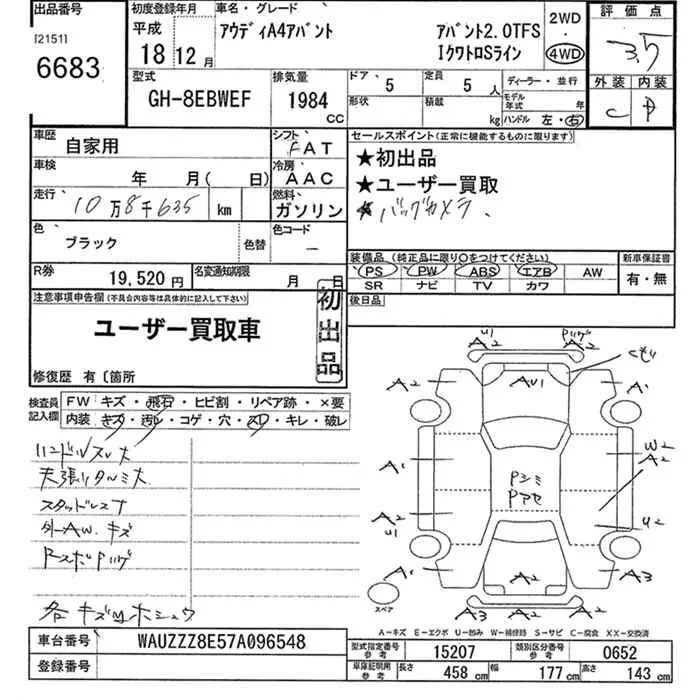 出品番号
[2151]
6683
初度登録年月
平成
18年12月
車名・グレード
アウディA4アバント
アバント2.0TFS
Iクワトロ Sライン
2WD
・
4WD
評価点
3.5
外装 内装
C D
型式
GH-8EBWEF
排気量
1984
CC
ドア 5
定員 5人
形状
積載
kg
ディーラー・並行
モデル年式 年
ハンドル 左・右
車歴
自家用
シフト
FAT
車検
年 月( 日)
冷房
AAC
走行
10万8千635 km
燃料
ガソリン
色
ブラック
色替
色コード
—
R券
19,520円
名変通知期限
月 日
セールスポイント(正常に機能するものに限ります)
★初出品
★ユーザー買取
★バックカメラ、
装備品(純正品に限り○をつけてください)
PS PW ABS エアB AW
SR ナビ TV カワ
新車保証書
有・無
後日品
注意事項申告欄(不具合内容等は具体的に記入して下さい)
ユーザー買取車
初出品
修復歴 有〔箇所
検査員記入欄
FW キズ・飛石・ヒビ割・リペア跡・×要
内装 キズ・汚レ・コゲ・穴・スレ・キレ・破レ
ハンドルスレ大
天張りタルミ大
スタッドレス
外AW.キズ
各キズ凹ホシュウ
U1
A2
A2
Au1
A2
A1
A1
W2
A2
Pシミ
Pアセ
A2
U1
U2
A1
A2
A3
A3
A2
スペア
A−キズ E−エクボ U−凹み W−補修跡 S−サビ C−腐食 XX−交換済
車台番号
WAUZZZ8E57A096548
登録番号
型式指定番号
参考
15207
類別区分番号
参考
0652
車庫証明用
参考
長さ 458 cm
幅 177 cm
高さ 143 cm